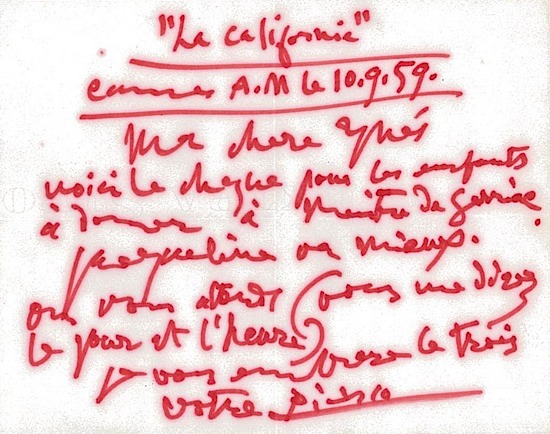 "La californie"
cannes A.M le 10.9.59.
Ma chere Ynés
voici le cheque pour les enfants
à donner à
Jacqueline va mieux.
on vous attends (vous me direz
le jour et l'heure)
je vous embrasse le trois
votre Picasso